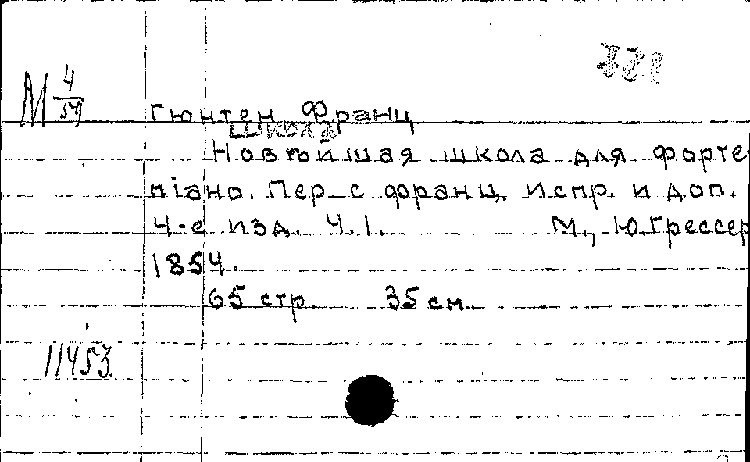 М 4/54
Гюнтен Франц
Школа
Новѣйшая школа для форте
піано. Пер с франц. Испр. и доп.
4-е изд. Ч.I. М., Ю.Грессер
1854.
65 стр. 35 см.
11453